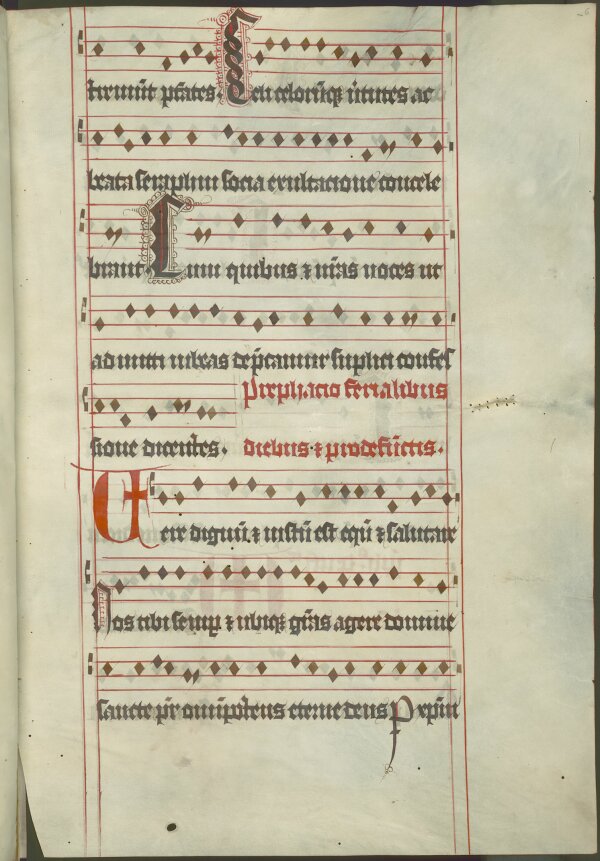 tremūt ptātes. Celi celorūqꝫ ūtutes ac
beata seraphin socia exultacione concele
brant. Cum quibus ⁊ nr̄as uoces ut
admitti iubeas dep̄camur suplici confes
sione dicentes. Prephacio ferialibus
diebus ⁊ prodefūctis.
Vere dignū ⁊ iustū est equū ⁊ salutare
Nos tibi semp ⁊ ubiqꝫ grās agere domine
sancte pr̄ omnipotens eterne deus Per xp̄m